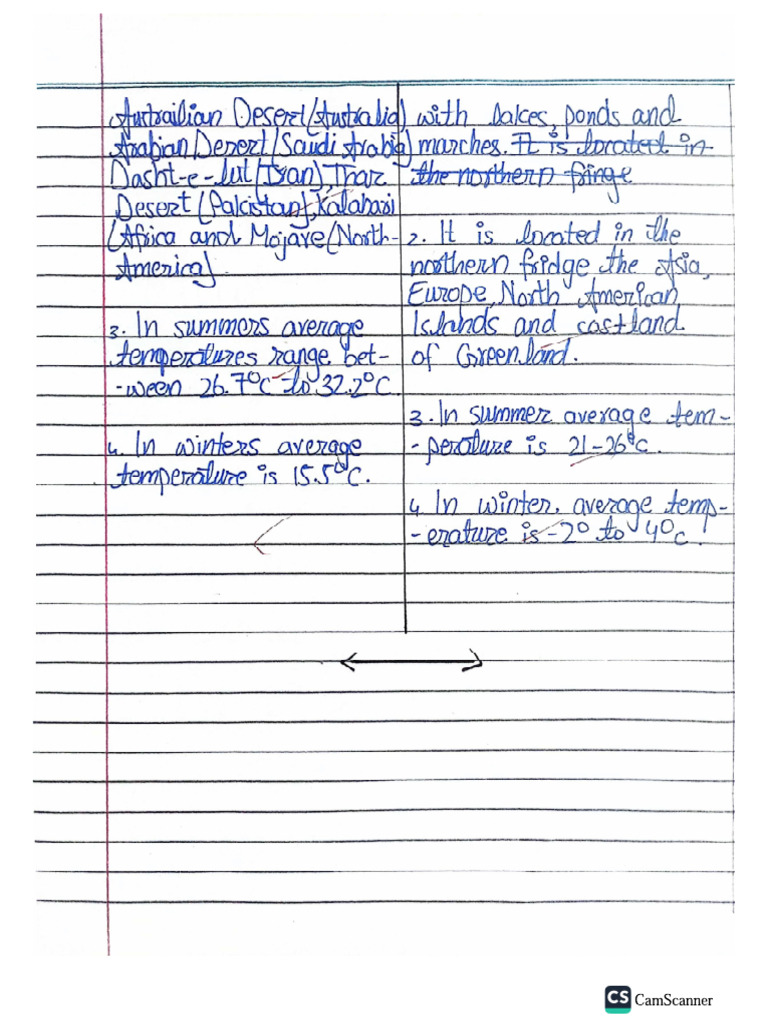 Austrailian Desert (Australia)
Arabian Desert (Saudi Arabia)
Dasht-e-lut (Iran), Thar
Desert (Pakistan), Kalahari
(Africa and Mojave (North-
America)
3. In summers average
temperatures range bet-
-ween 26.7°C to 32.2°C.
4. In winters average
temperature is 15.5°C.
with lakes, ponds and
marches. It is located in
the northern fringe
2. It is located in the
northern fridge the Asia,
Europe, North American
Islands and eastland
of Greenland.
3. In summer average tem-
-perature is 21-26°C.
4. In winter, average temp-
-erature is -2° to 4°C.
CS CamScanner